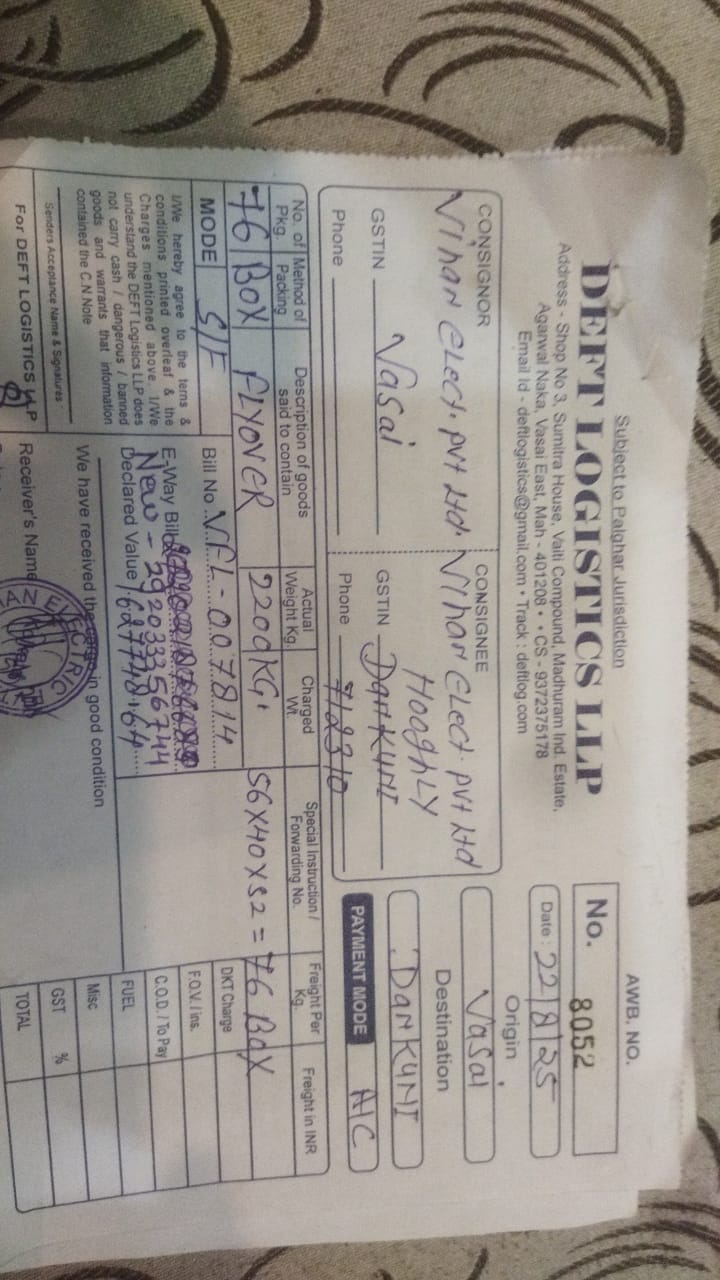 Subject to Palghar Jurisdiction
AWB. NO.
DEFT LOGISTICS LLP
No. 8052
Address - Shop No 3, Sumitra House, Valti Compound, Madhuram Ind. Estate,
Agarwal Naka, Vasai East, Mah - 401208 • • CS - 9372375178
Email Id - deftlogistics@gmail.com • Track : deftlog.com
Date : 22/8/25
CONSIGNOR
Vihar Elect. pvt Ltd.
GSTIN Vasai
Phone
CONSIGNEE
Vihar Elect. pvt Ltd
HooghLY
GSTIN DanKUNI
Phone 712310
Origin
Vasai
Destination
DanKUNI
PAYMENT MODE A/C
No. of Pkg. Method of Packing Description of goods said to contain Actual Weight Kg. Charged Wt. Special Instruction / Forwarding No. Freight Per Kg. Freight in INR
76 BOX FLYOVER 2200KG. 56X40X52 = 76 BOX
MODE S/F
Bill No. VFL-007814
DKT Charge
F.O.V. / ins.
C.O.D. / To Pay
FUEL
Misc
GST %
TOTAL
I/We hereby agree to the tems &
conditions printed overleaf & the
Charges mentioned above. I/We
understand the DEFT Logistics LLP does
not carry cash / dangerous / banned
goods and warrants that information
contained the C.N.Note
E-Way Bill
New - 292033356744
Declared Value 1687748.64
We have received the cargo in good condition
Senders Acceptance Name & Signatures :
For DEFT LOGISTICS LLP
Receiver's Name